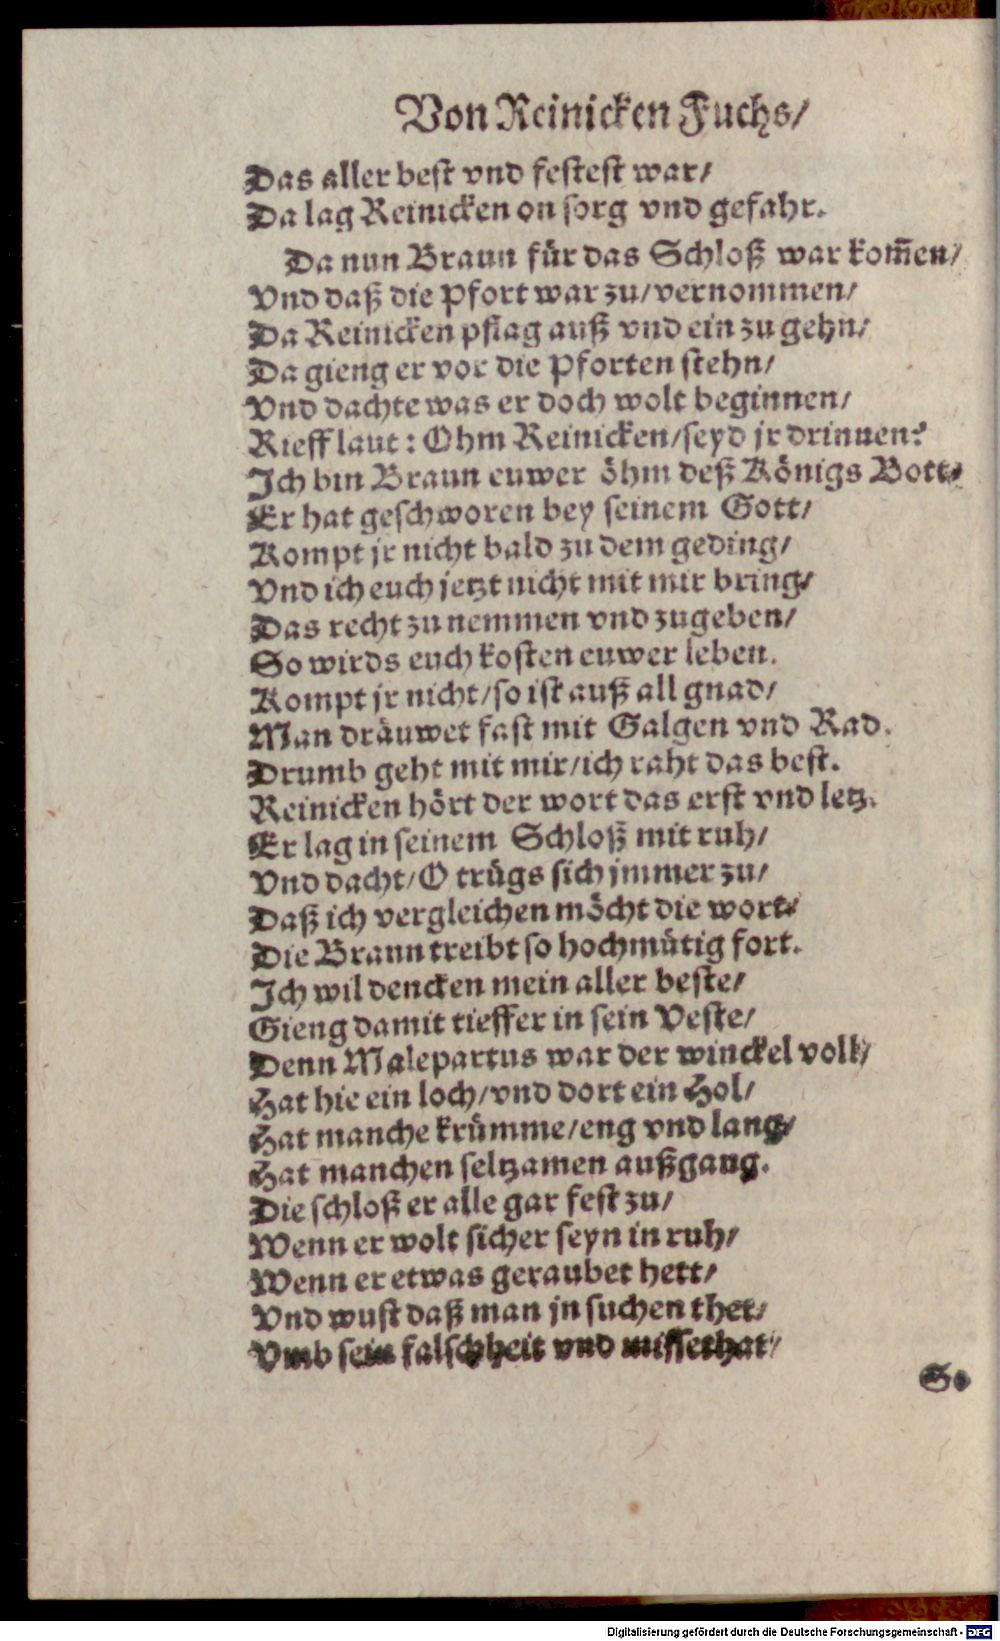 Von Reinicken Fuchs/
Das aller best vnd festest war/
Da lag Reinicken on sorg vnd gefahr.
Da nun Braun für das Schloß war kom̃en/
Vnd daß die Pfort war zu/vernommen/
Da Reinicken pflag auß vnd ein zu gehn/
Da gieng er vor die Pforten stehn/
Vnd dachte was er doch wolt beginnen/
Rieff laut: Ohm Reinicken/seyd jr drinnen?
Ich bin Braun euwer öhm deß Königs Bott/
Er hat geschworen bey seinem Gott/
Kompt jr nicht bald zu dem geding/
Vnd ich euch jetzt nicht mit mir bring/
Das recht zu nemmen vnd zugeben/
So wirds euch kosten euwer leben.
Kompt jr nicht/so ist auß all gnad/
Man dräuwet fast mit Galgen vnd Rad.
Drumb geht mit mir/ich raht das best.
Reinicken hört der wort das erst vnd letz.
Er lag in seinem Schloß mit ruh/
Vnd dacht/O trügs sich jmmer zu/
Daß ich vergleichen möcht die wort/
Die Braun treibt so hochmütig fort.
Ich wil dencken mein aller beste/
Gieng damit tieffer in sein Veste/
Denn Malepartus war der winckel voll/
Hat hie ein loch/vnd dort ein Hol/
Hat manche krümme/eng vnd lang/
Hat manchen seltzamen außgang.
Die schloß er alle gar fest zu/
Wenn er wolt sicher seyn in ruh/
Wenn er etwas geraubet hett/
Vnd wust daß man jn suchen thet/
Vmb sein falschheit vnd missethat/
So
Digitalisierung gefördert durch die Deutsche Forschungsgemeinschaft - DFG